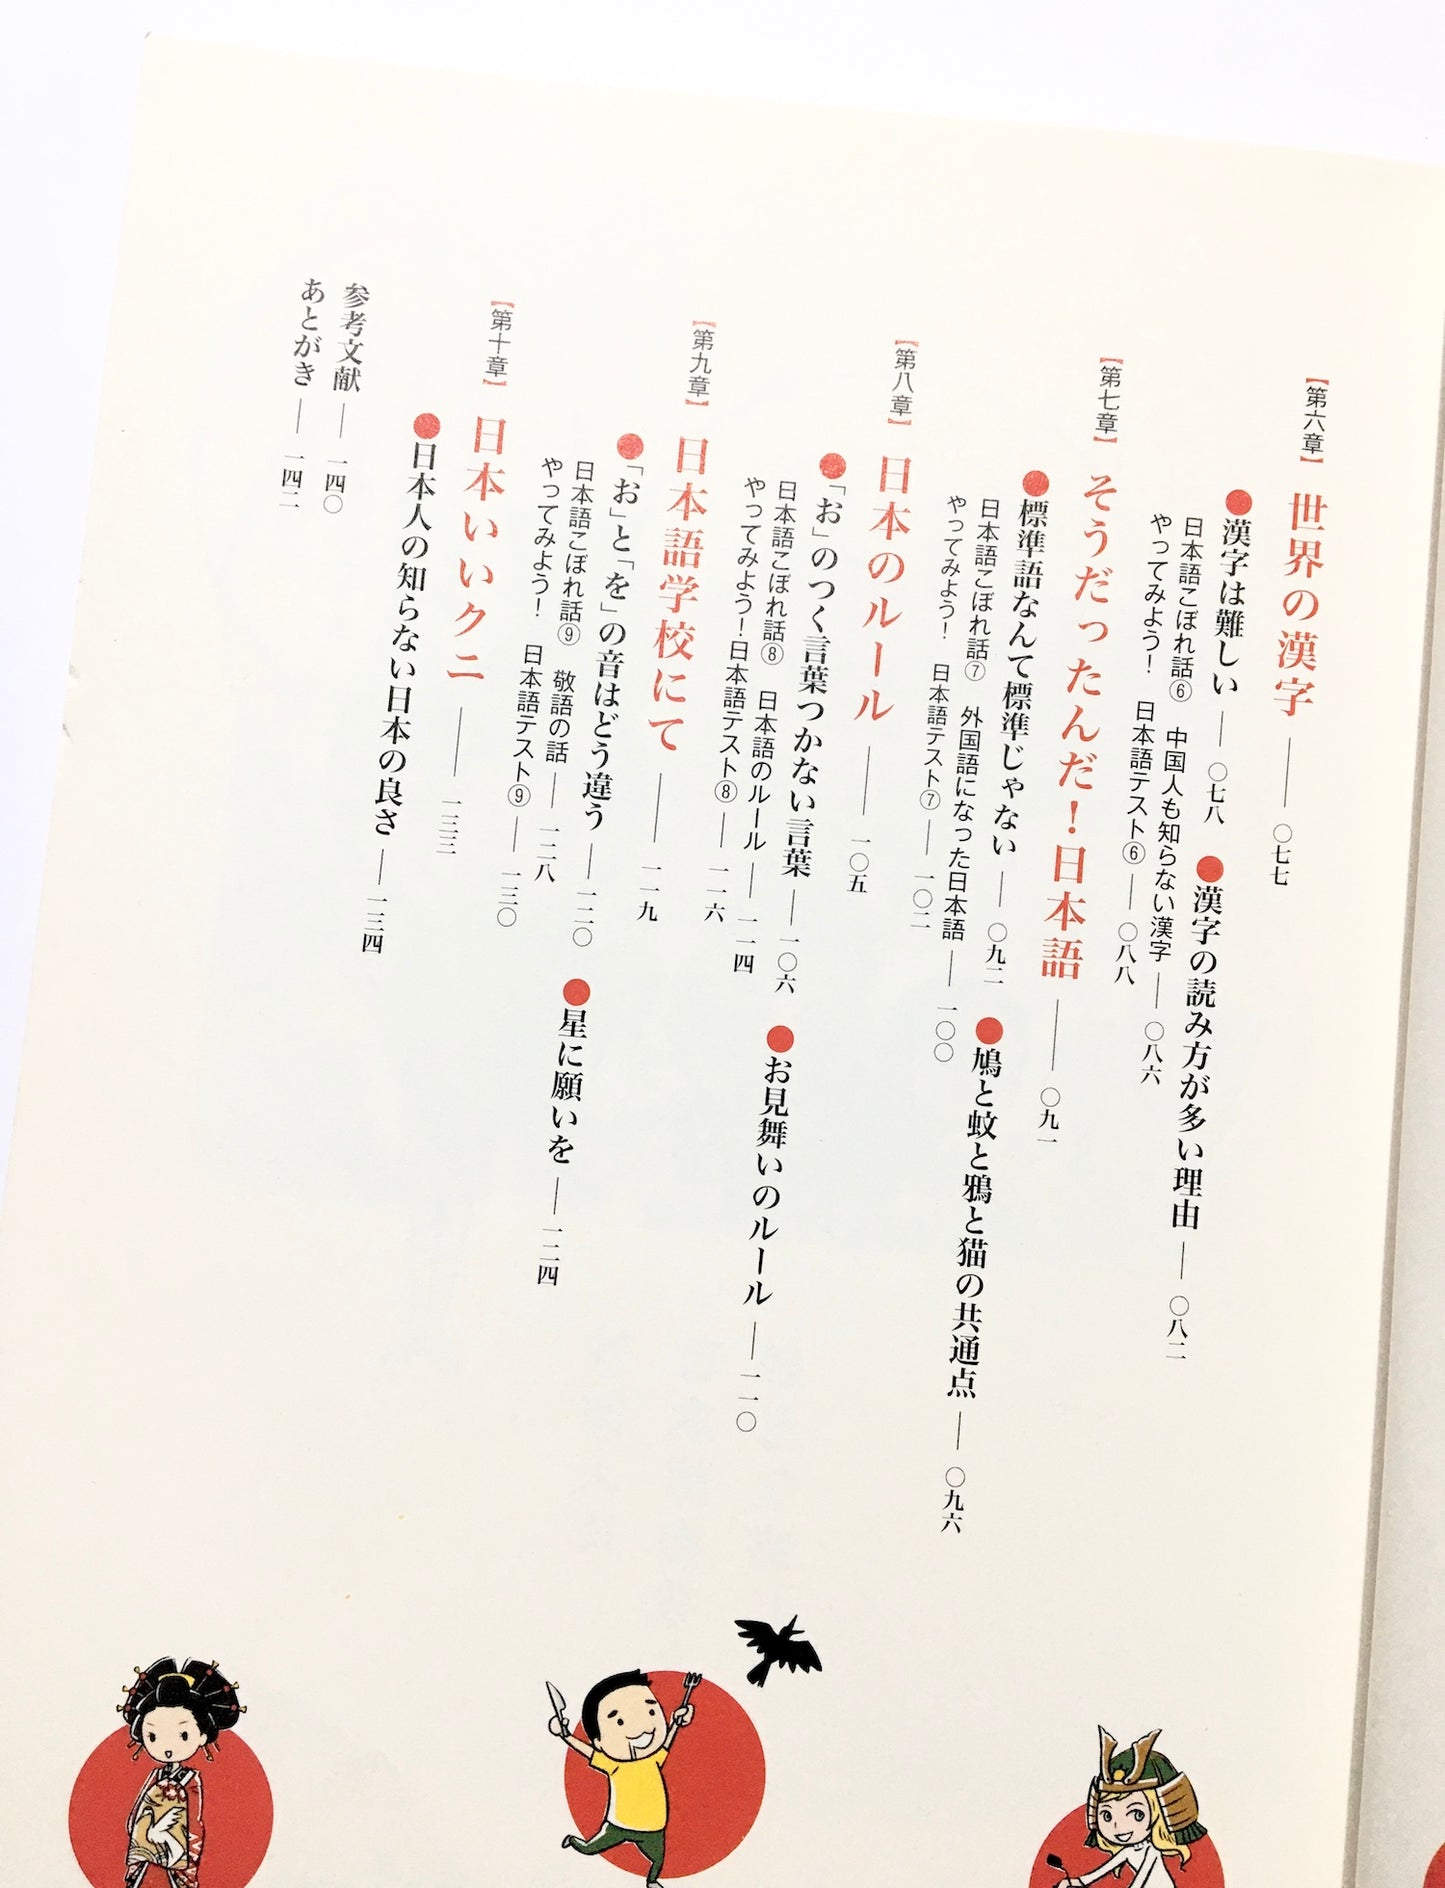 【第六章】 世界の漢字 ―― 〇七七
●漢字は難しい ― 〇七八 ●漢字の読み方が多い理由 ― 〇八二
日本語こぼれ話⑥ 中国人も知らない漢字 ― 〇八六
やってみよう! 日本語テスト⑥ ― 〇八八
【第七章】 そうだったんだ!日本語 ―― 〇九一
●標準語なんて標準じゃない ― 〇九二 ●鳩と蚊と鴉と猫の共通点 ― 〇九六
日本語こぼれ話⑦ 外国語になった日本語 ― 一〇〇
やってみよう! 日本語テスト⑦ ― 一〇二
【第八章】 日本のルール ―― 一〇五
●「お」のつく言葉つかない言葉 ― 一〇六 ●お見舞いのルール ― 一一〇
日本語こぼれ話⑧ 日本語のルール ― 一一四
やってみよう!日本語テスト⑧ ― 一一六
【第九章】 日本語学校にて ―― 一一九
●「お」と「を」の音はどう違う ― 一二〇 ●星に願いを ― 一二四
日本語こぼれ話⑨ 敬語の話 ― 一二八
やってみよう! 日本語テスト⑨ ― 一三〇
【第十章】 日本いいクニ ―― 一三三
●日本人の知らない日本の良さ ― 一三四
参考文献 ― 一四〇
あとがき ― 一四二